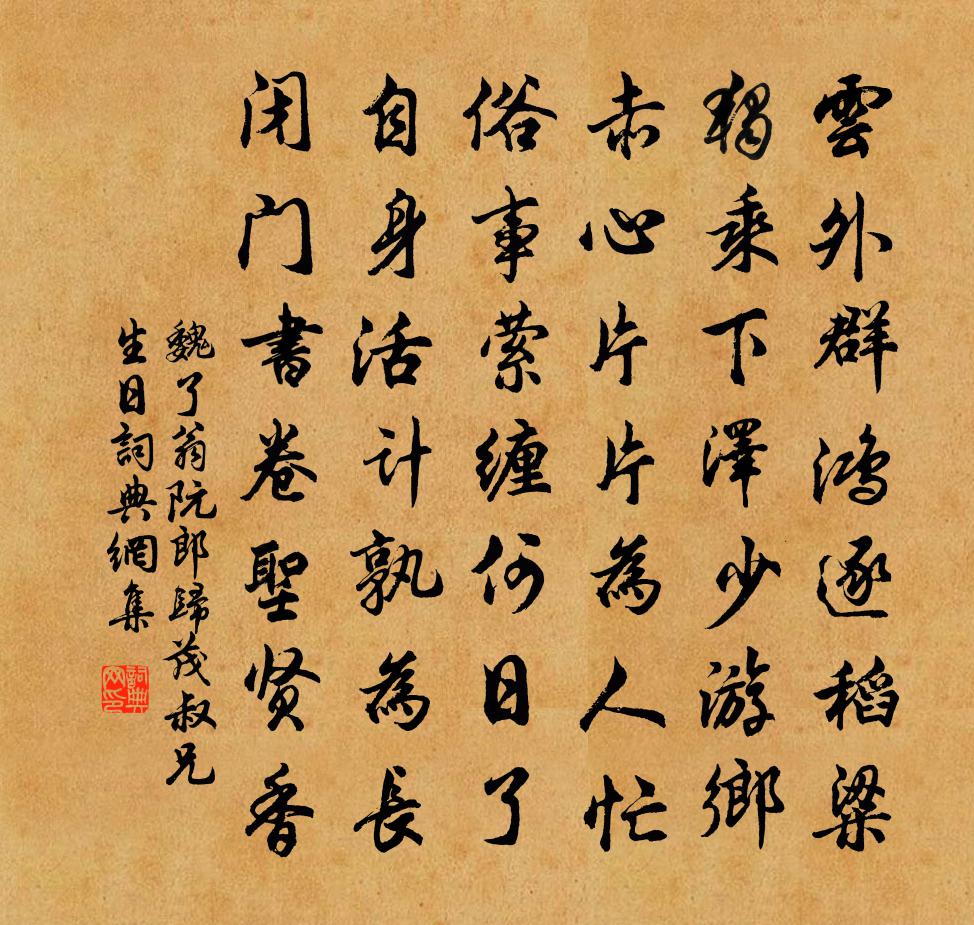 雲外群鴻逐稻粱
獨乘下澤少游鄉
赤心片片為人忙
俗事縈缠何日了
自身活计孰為長
闭门書卷聖贤香
魏了翁阮郎歸茂叔兄
生日詞典網集
詞典
网印